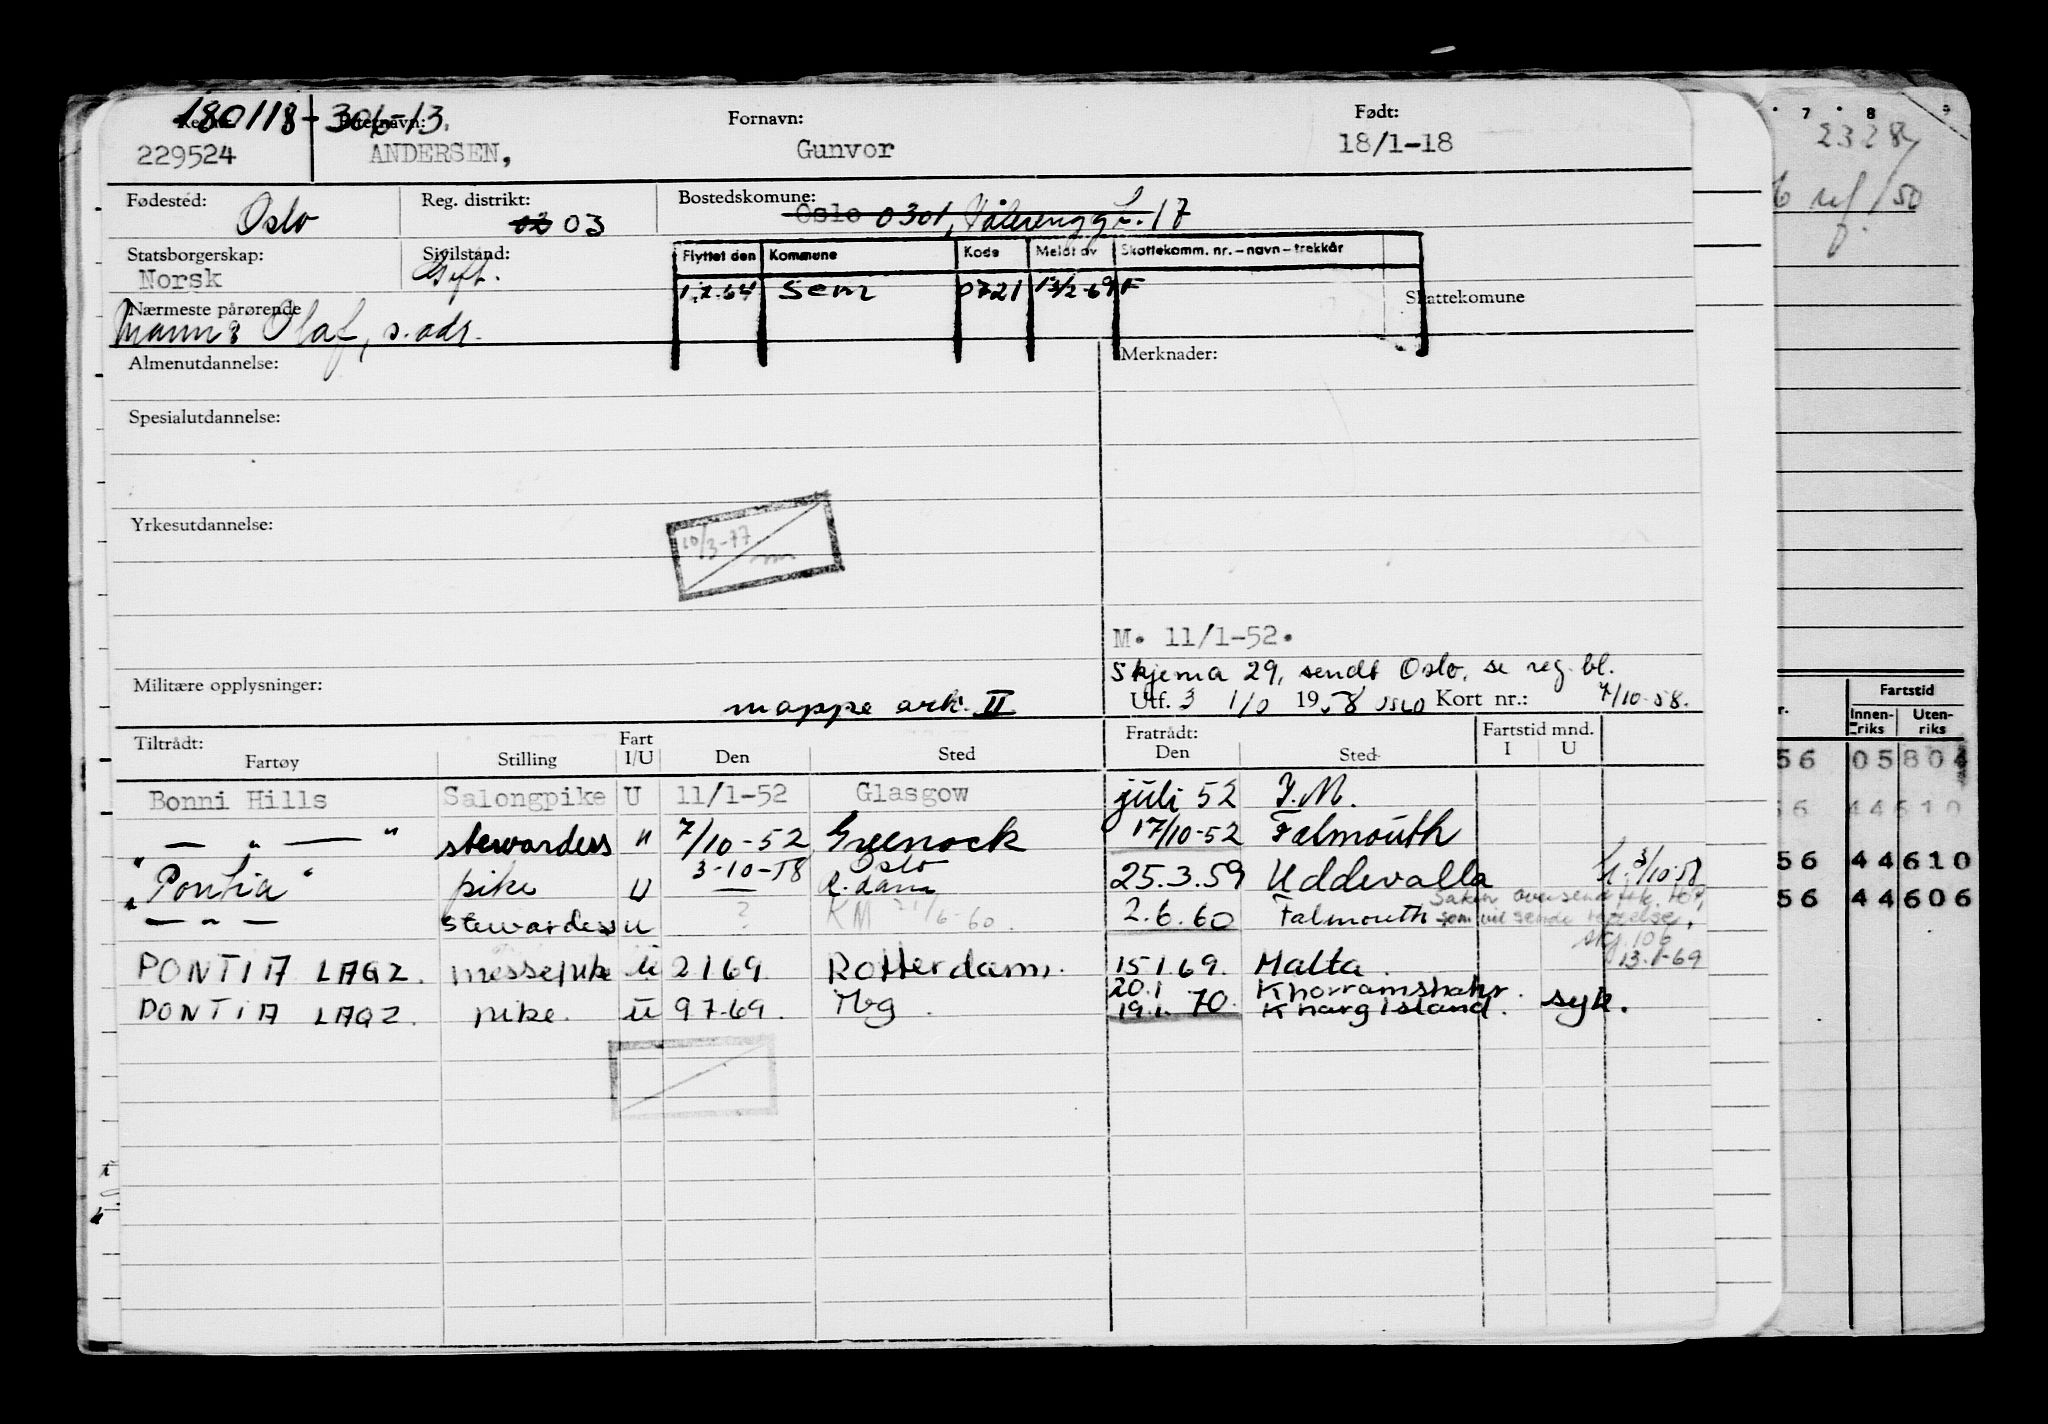 180118-306-13.
Etternavn: Fornavn: Født:
229524 ANDERSEN, Gunvor 18/1-18
Fødested: Oslo Reg. distrikt: 03 Bostedskommune: Oslo 0301, Vålerenggt. 17
Statsborgerskap: Norsk Sivilstand: Gift.
Flyttet den Kommune Kode Meldt av Skattekomm. nr. – navn – trekkår
Sem 0721 F
Skattekomune
Nærmeste pårørende
Mann: Olaf, s. adr.
Almenutdannelse: Merknader:
Spesialutdannelse:
Yrkesutdannelse:
10/3-77
M. 11/1-52.
Skjema 29, sendt Oslo, se reg. bl.
Militære opplysninger: mappe ark. II Utf. 3 1/0 1958 Oslo Kort nr.: 7/10-58.
Tiltrådt: Fratrådt: Fartstid mnd.
Fartøy Stilling Fart I/U Den Sted Den Sted I U
Bonni Hills Salongpike U 11/1-52 Glasgow juli 52
— " — " stewardess " 7/10-52 Greenock 17/10-52 Falmouth
"Pontia" pike U 3-10-58 Oslo R.dam 25.3.59 Uddevalla 3/10-58
— " — stewardess u ? KM 21/6-60. 2.6.60 Falmouth
som vil sende
skj. 106
13.1-69
PONTIA LAQZ. messepike ū 2169. Rotterdam. 15.1.69. Malta.
PONTIA LAQZ. pike. ū 97-69. 20.1 Khorramshahr.
19.1. 70. Kharg Island. syk.
7 8 9
2328
/50
Fartstid
Innen-riks Uten-riks
56 05804
56 44610
56 44610
56 44606